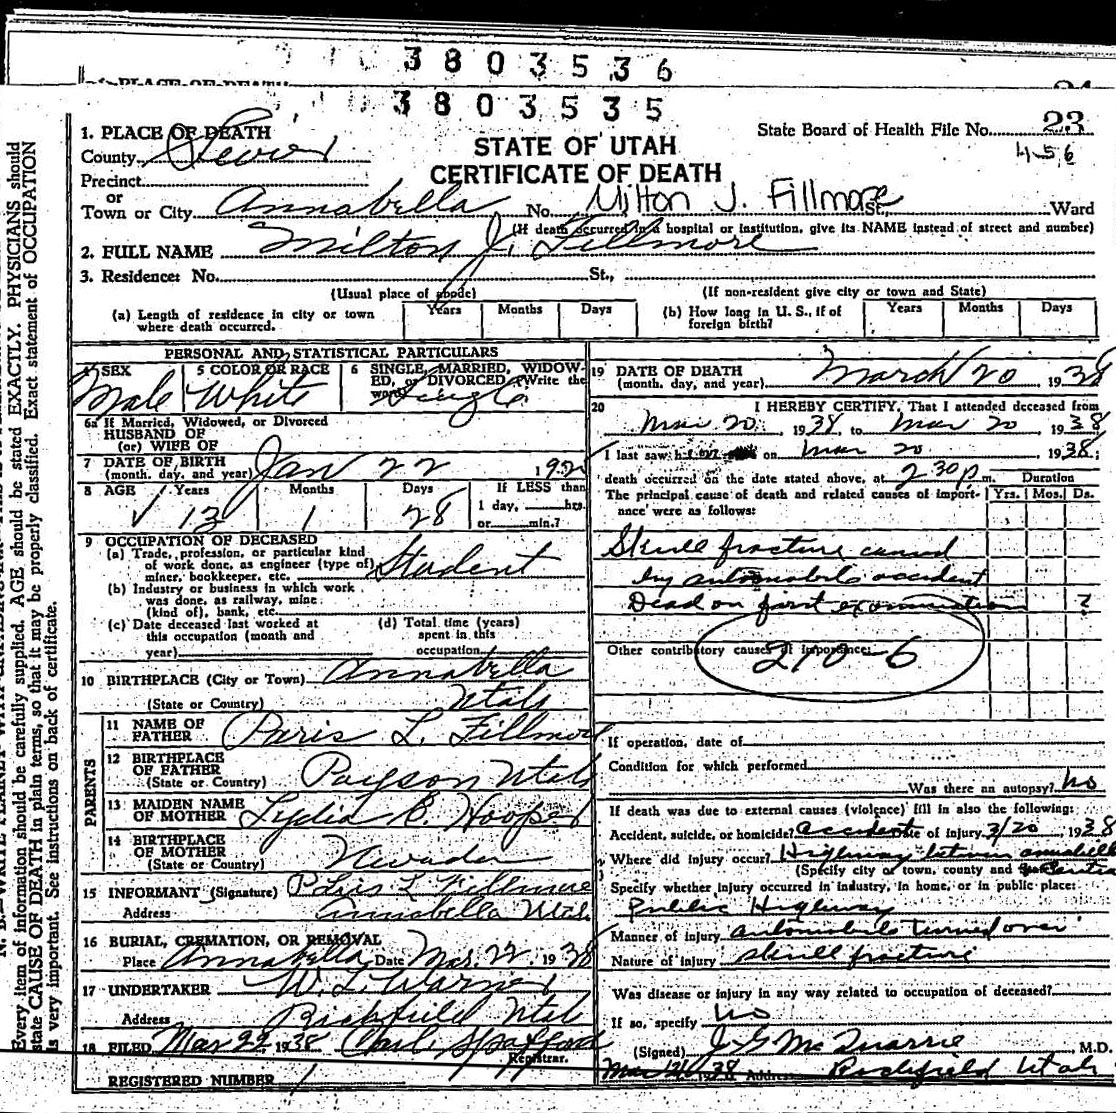 3803536
PLACE OF DEATH
3803535
1. PLACE OF DEATH
County Sevier
STATE OF UTAH
CERTIFICATE OF DEATH
State Board of Health File No. 23
456
Precinct
or
Town or City Annabella No. Milton J. Fillmore St., Ward
(If death occurred in a hospital or institution, give its NAME instead of street and number)
2. FULL NAME Milton J. Fillmore
3. Residence: No. St.,
(Usual place of abode) (If non-resident give city or town and State)
(a) Length of residence in city or town where death occurred. Years Months Days
(b) How long in U. S., if of foreign birth? Years Months Days
PERSONAL AND STATISTICAL PARTICULARS
4 SEX Male
5 COLOR OR RACE White
6 SINGLE, MARRIED, WIDOWED, or DIVORCED (Write the word) Single
6a If Married, Widowed, or Divorced
HUSBAND OF
(or) WIFE OF
7 DATE OF BIRTH
(month, day, and year) Jan 22 192
8 AGE Years 13 Months 1 Days 28 If LESS than 1 day, hrs. or min.?
9 OCCUPATION OF DECEASED
(a) Trade, profession, or particular kind of work done, as engineer (type of) miner, bookkeeper, etc. Student
(b) Industry or business in which work was done, as railway, mine (kind of), bank, etc.
(c) Date deceased last worked at this occupation (month and year)
(d) Total time (years) spent in this occupation
10 BIRTHPLACE (City or Town) Annabella
(State or Country) Utah
PARENTS
11 NAME OF FATHER Paris L. Fillmore
12 BIRTHPLACE OF FATHER
(State or Country) Payson Utah
13 MAIDEN NAME OF MOTHER Lydia E. Hooper
14 BIRTHPLACE OF MOTHER
(State or Country) Nevada
15 INFORMANT (Signature) Paris L Fillmore
Address Annabella Utah
16 BURIAL, CREMATION, OR REMOVAL
Place Annabella Date Mar. 22, 1938
17 UNDERTAKER W. L. Warner
Address Richfield Utah
18 FILED Mar 22 1938 Spafford
Registrar.
REGISTERED NUMBER 1
19 DATE OF DEATH
(month, day, and year) March 20 1938
20 I HEREBY CERTIFY, That I attended deceased from
Mar 20, 1938 to Mar 20, 1938
I last saw h on Mar 20 1938;
death occurred on the date stated above, at 2:30 p. m.
Duration
The principal cause of death and related causes of importance were as follows:
Yrs. Mos. Ds.
Skull fracture caused
by automobile accident
Dead on first examination ?
Other contributory causes of importance:
210-6
If operation, date of
Condition for which performed
Was there an autopsy? No
If death was due to external causes (violence) fill in also the following:
Accident, suicide, or homicide? accident Date of injury 3/20, 1938
Where did injury occur? Highway between Annabella
(Specify city or town, county and
Specify whether injury occurred in industry, in home, or in public place:
Public Highway
Manner of injury automobile turned over
Nature of injury skull fracture
Was disease or injury in any way related to occupation of deceased?
If so, specify no
(Signed) J G McQuarrie, M.D.
1938 Address Richfield Utah
Every item of information should be carefully supplied. AGE should be stated EXACTLY. PHYSICIANS should
state CAUSE OF DEATH in plain terms, so that it may be properly classified. Exact statement of OCCUPATION
is very important. See instructions on back of certificate.